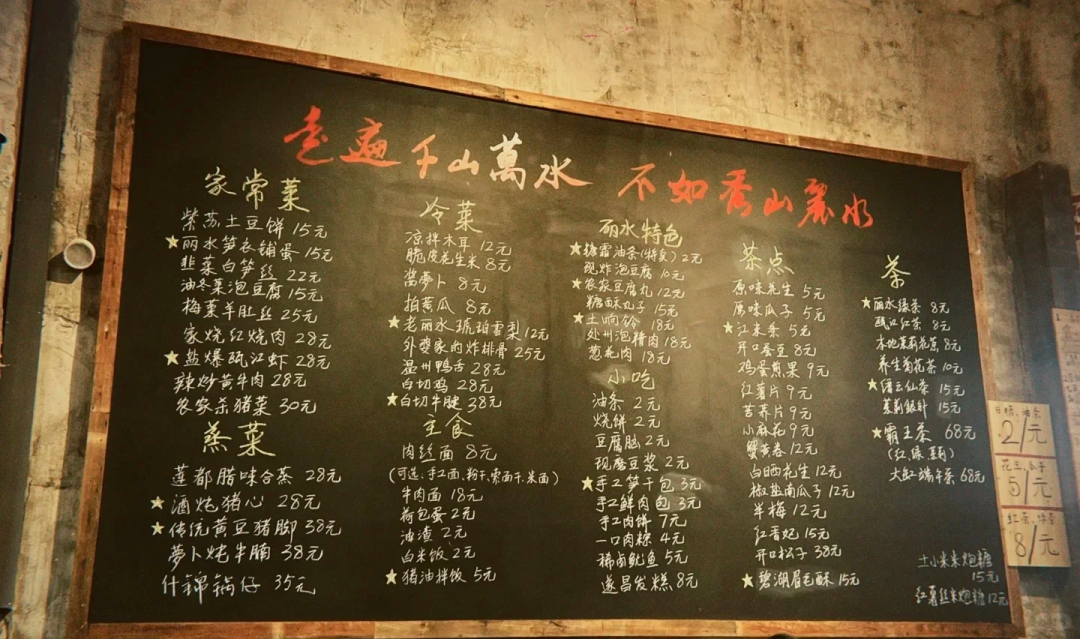 走遍千山萬水 不如秀山麗水
家常菜
紫苏土豆饼 15元
★丽水笋衣铺蛋 15元
韭菜白笋丝 22元
油冬菜泡豆腐 15元
梅菜羊肚丝 25元
家烧红烧肉 28元
★盐爆瓯江虾 28元
辣炒黄牛肉 28元
农家杀猪菜 30元
蒸菜
莲都腊味合蒸 28元
★酒炖猪心 28元
★传统黄豆猪脚 38元
萝卜炖牛腩 38元
什錦锅仔 35元
冷菜
凉拌木耳 12元
脆皮花生米 8元
酱萝卜 8元
拍黄瓜 8元
★老丽水琥珀雪梨 12元
外婆家的炸排骨 25元
温州鸭舌 28元
白切鸡 28元
★白切牛腱 38元
主食
肉丝面 8元
(可选:手工面、粉干、索面干、米面)
牛肉面 18元
荷包蛋 2元
油渣 2元
白米饭 2元
★猪油拌饭 5元
丽水特色
★糖霜油条(特卖) 2元
现炸泡豆腐 10元
★农家豆腐丸 12元
糖酥丸子 15元
★土响铃 18元
处州泡精肉 18元
葱花肉 18元
小吃
油条 2元
烧饼 2元
豆腐脑 2元
现磨豆浆 2元
★手工笋干包 3元
手工鲜肉包 3元
手工肉饼 7元
一口肉粽 4元
稀卤鱿鱼 5元
遂昌发糕 8元
茶点
原味花生 5元
原味瓜子 5元
★江米条 5元
开口蚕豆 8元
鸡蛋煎果 9元
红薯片 9元
苦荞片 9元
小麻花 9元
蟹黄卷 12元
白晒花生 12元
椒盐南瓜子 12元
半梅 12元
红香妃 15元
开口松子 38元
★碧湖眉毛酥 15元
茶
★丽水绿茶 8元
瓯江红茶 8元
本地茉莉花茶 8元
养生菊花茶 10元
★缙云仙茶 15元
茉莉银针 15元
★霸王茶 68元
(红、绿、茉莉)
大缸端午茶 68元
土小米米炮糖
15元
红薯丝米炮糖 12元
2/元
5/元
8/元